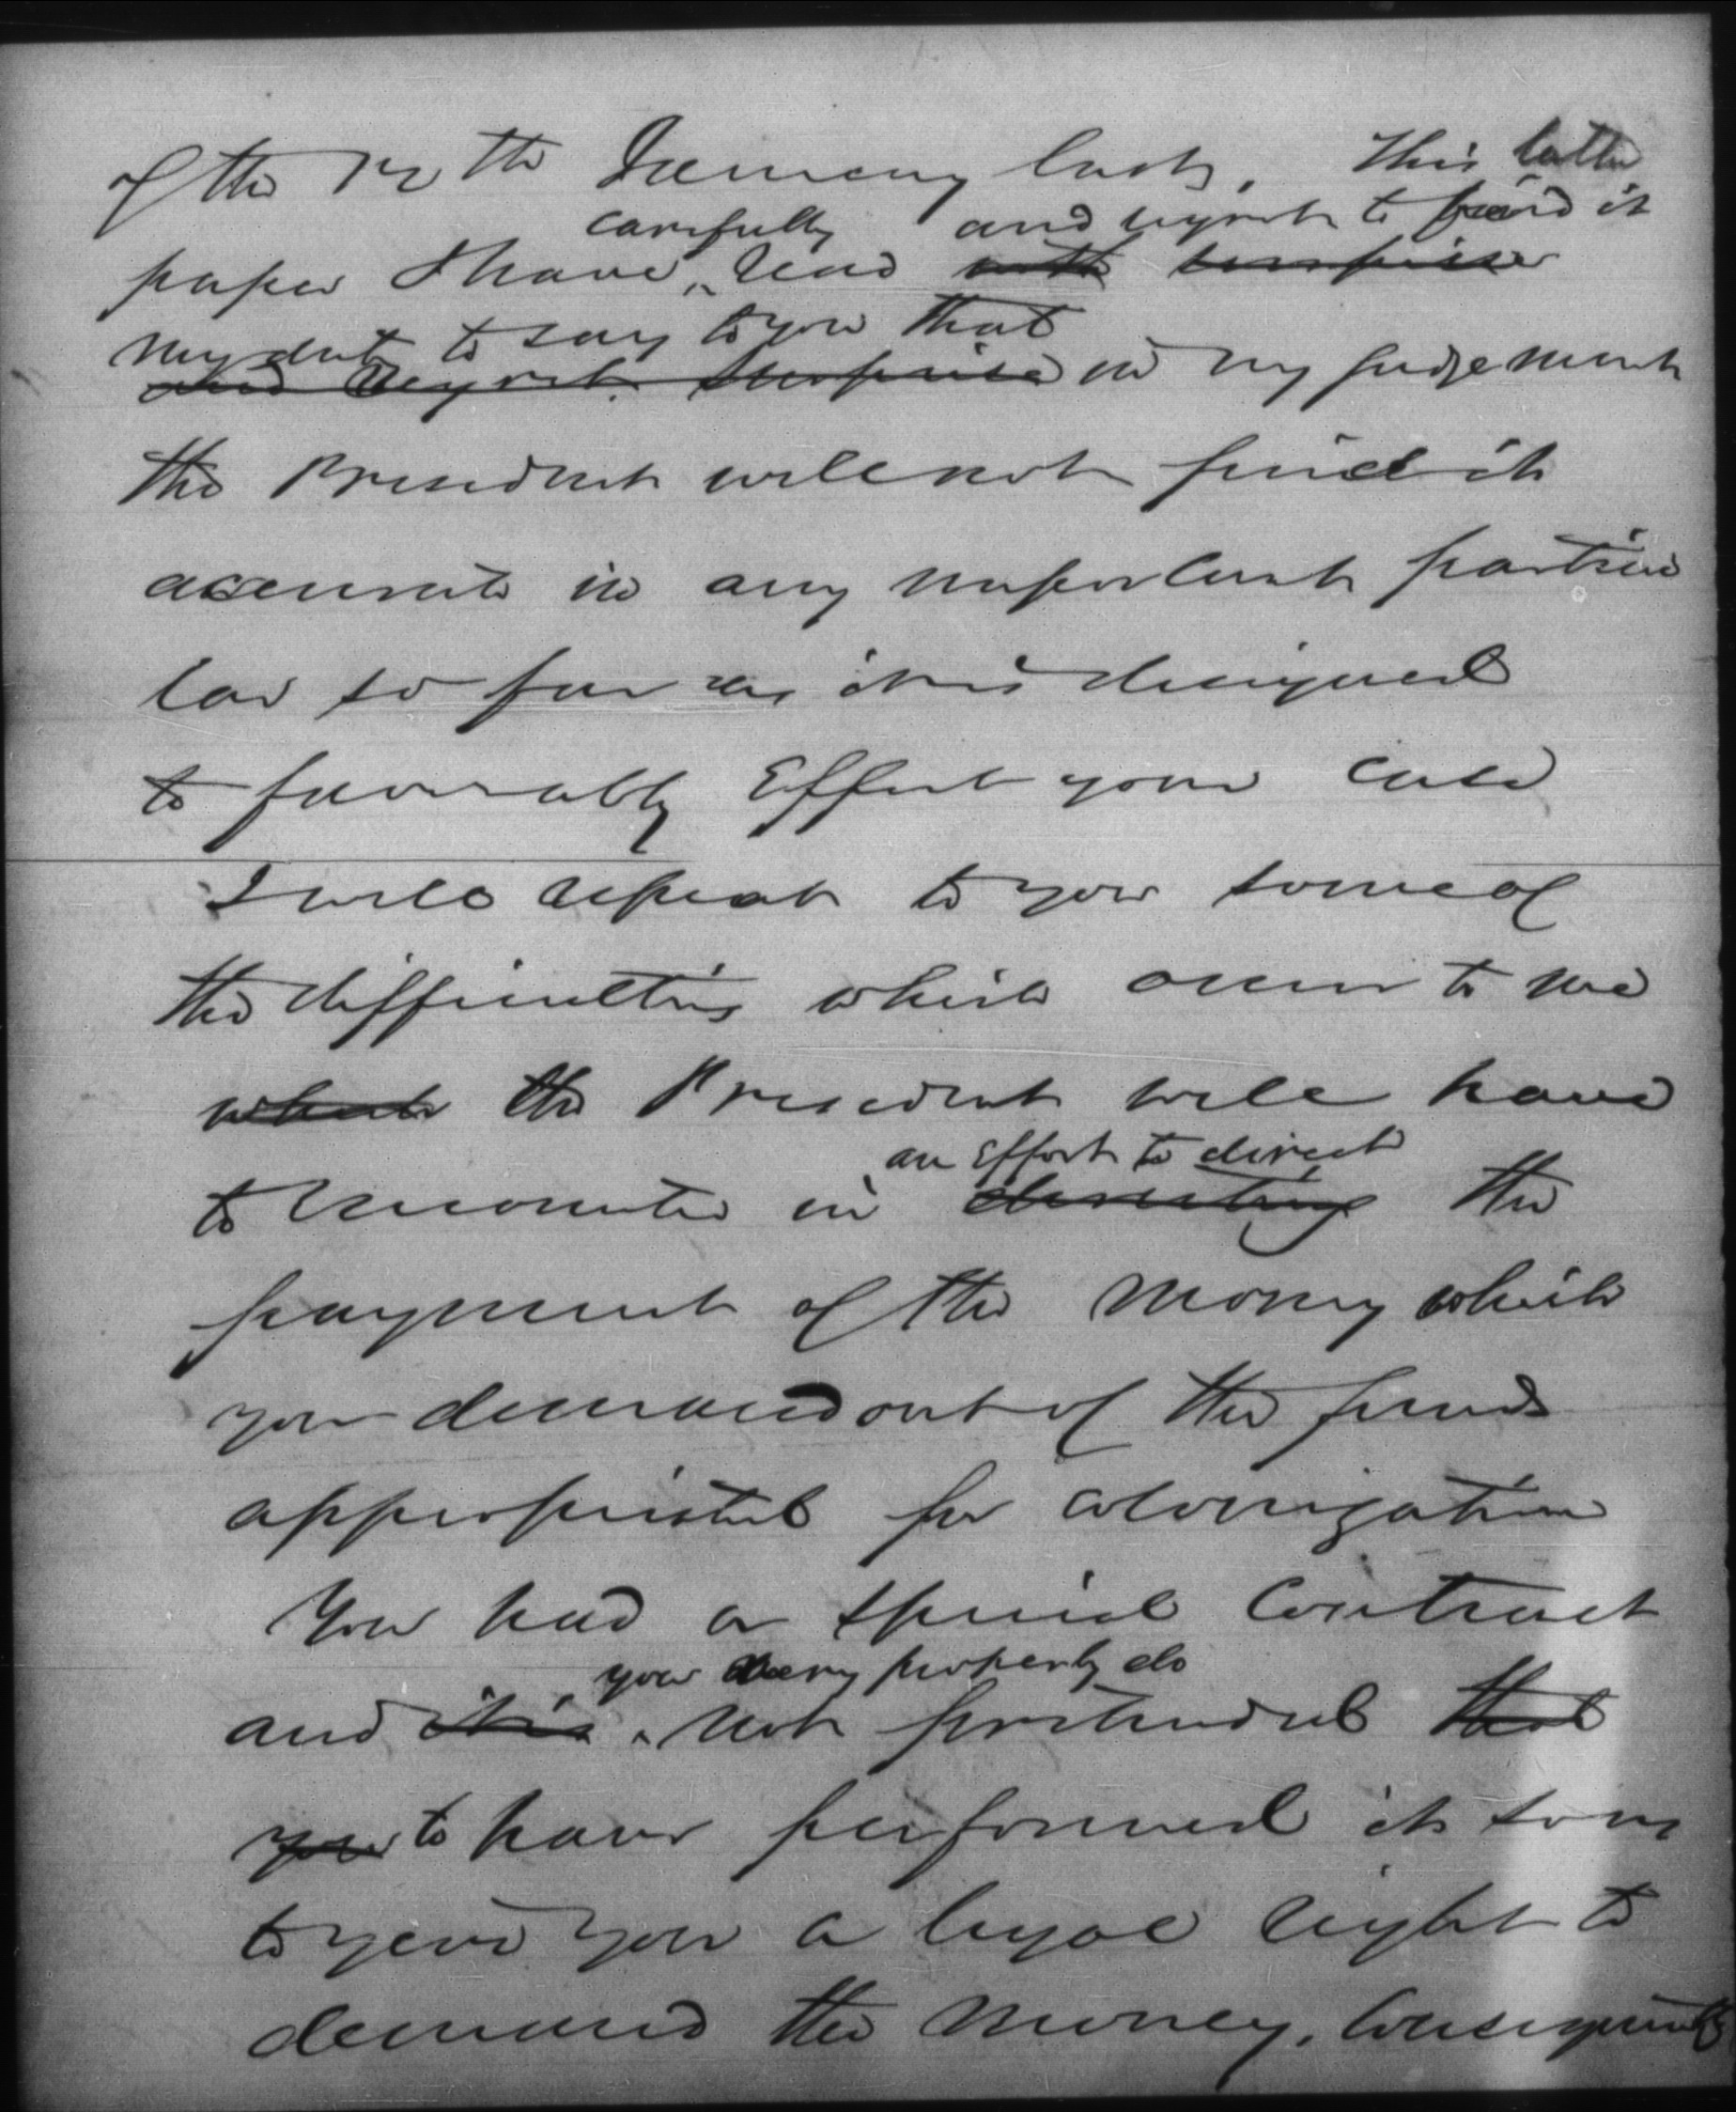 of the 12th January last. This latter
carefully and regret to find it
paper I have ‸ read with surprise
my duty to say to you that
and regret. surprise in my judgement
the President will not find it
accurate in any important particu
lar so far as it is designed
to favorably Effect your case
I will repeat to you some of
the difficulties which occur to me
which the President will have
an Effort to direct
to encounter in directing the
payment of the money which
you demand out of the funds
appropriated for colonization
You had a special Contract
you very properly do
and it is ‸ not pretended that
you to have performed it so as
to give you a legal right to
demand the money. Consequently